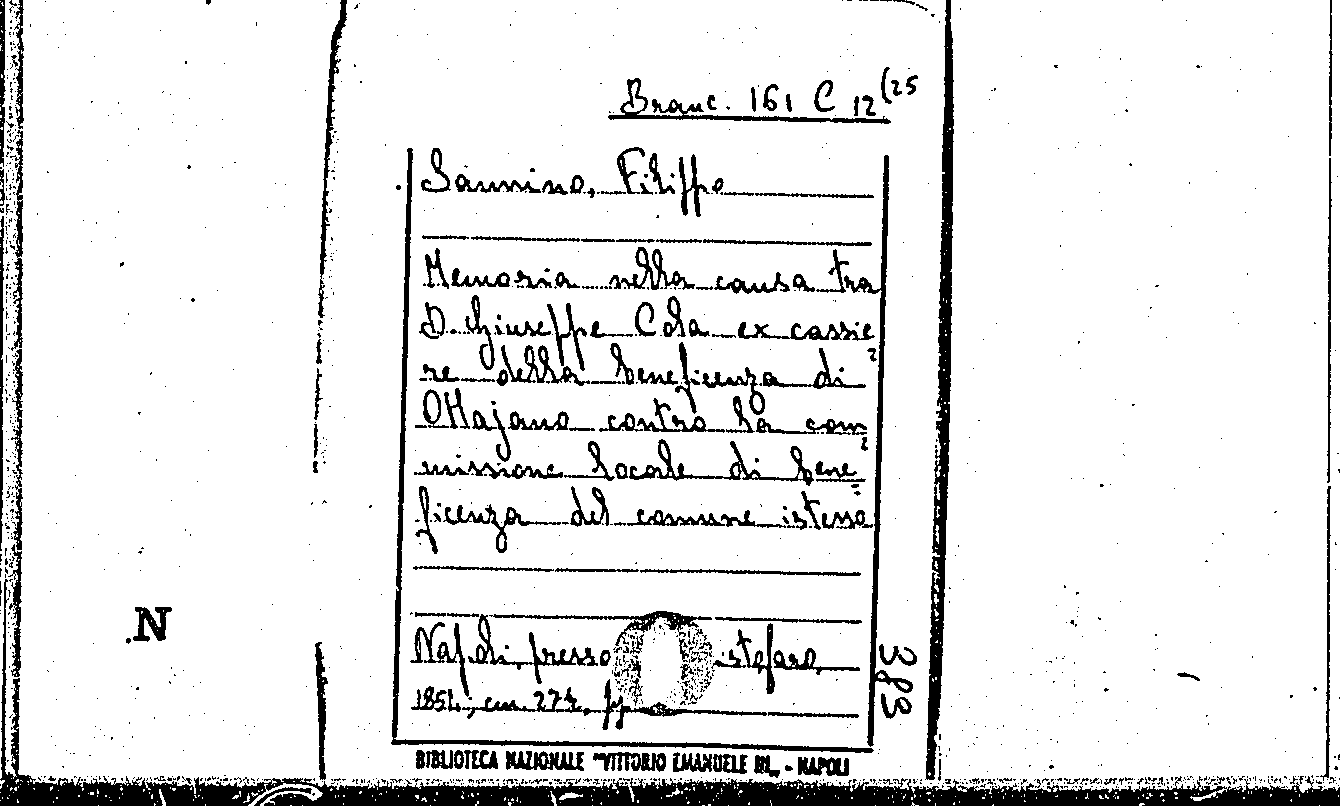 Branc. 161 C 12(25
Sannino, Filippo
Memoria nella causa tra
D. Giuseppe Cola ex cassie
re della beneficenza di
Ottajano contro la com
missione locale di bene=
ficenza del comune istesso
Napoli, presso istofaro,
1851.; cm. 27½, pp
383
N
BIBLIOTECA NAZIONALE "VITTORIO EMANUELE III„ - NAPOLI